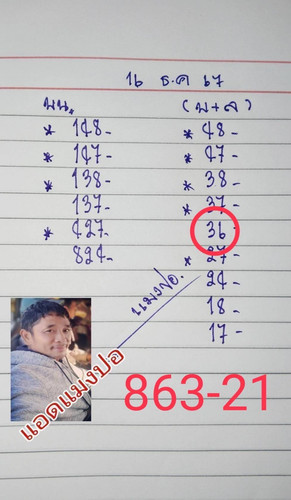 16 ธ.ค 67
บน. (บ+ล)
* 148- * 48-
* 147- * 47-
* 138- * 38-
137- * 37-
* 427- 36
824- * 27-
24-
18-
17-
แมงปอ.
แอดแมงปอ
863-21